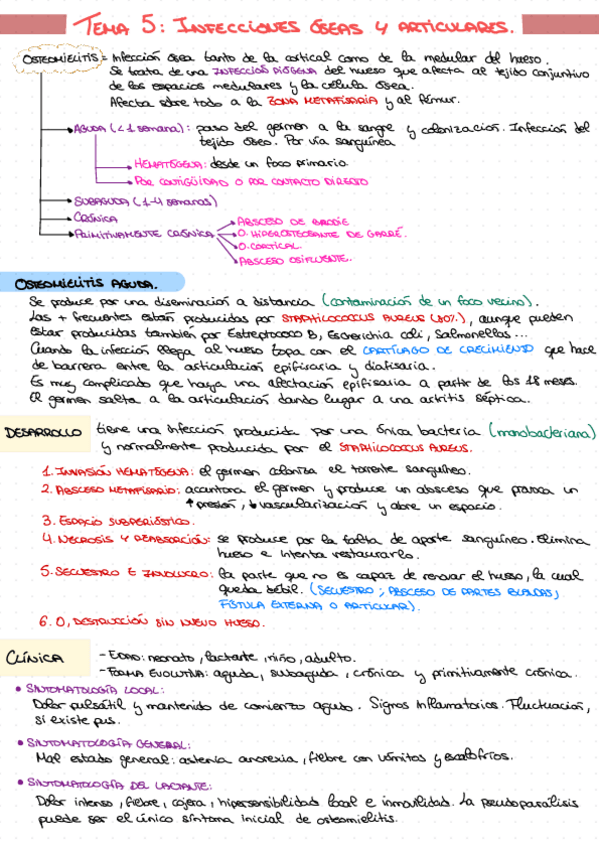 TEMA 5: INFECCIONES ÓSEAS Y ARTICULARES.
OSTEOMIELITIS = Infección ósea tanto de la cortical como de la medular del hueso.
Se trata de una INFECCIÓN PIÓGENA del hueso que afecta al tejido conjuntivo
de los espacios medulares y la célula ósea.
Afecta sobre todo a la ZONA METAFISARIA y al fémur.
AGUDA (<1 semana): paso del germen a la sangre y colonización. Infección del
tejido óseo. Por vía sanguínea
HEMATÓGENA: desde un foco primario
POR CONTIGÜIDAD O POR CONTACTO DIRECTO
SUBAGUDA (1-4 semanas)
CRÓNICA
PRIMITIVAMENTE CRÓNICA
ABSCESO DE BRODIE
O. HIPEROSTOSANTE DE GARRÉ.
O. CORTICAL.
ABSCESO OSIFLUENTE.
OSTEOMIELITIS AGUDA.
Se produce por una diseminación a distancia (contaminación de un foco vecino).
Las + frecuentes están producidas por STAPHILOCOCCUS AUREUS (80%), aunque pueden
estar producidas también por Estreptococo B, Escherichia coli, Salmonellas...
Cuando la infección llega al hueso topa con el CARTÍLAGO DE CRECIMIENTO que hace
de barrera entre la articulación epifisaria y diafisaria.
Es muy complicado que haya una afectación epifisaria a partir de los 18 meses.
El germen salta a la articulación dando lugar a una artritis séptica.
DESARROLLO tiene una infección producida por una única bacteria (monobacteriana)
y normalmente producida por el STAPHILOCOCCUS AUREUS.
1. INVASIÓN HEMATÓGENA: el germen coloniza el torrente sanguíneo.
2. ABSCESO METAFISARIO: acantona el germen y produce un absceso que provoca un
↑ presión, ↓ vascularización y abre un espacio.
3. ESPACIO SUBPERIÓSTICO.
4. NECROSIS Y REABSORCIÓN: se produce por la falta de aporte sanguíneo. Elimina
hueso e intenta restaurarlo.
5. SECUESTRO E INVOLUCRO: la parte que no es capaz de renovar el hueso, la cual
queda débil. (SECUESTRO; ABSCESO DE PARTES BLANDAS,
FÍSTULA EXTERNA O ARTICULAR).
6. O, DESTRUCCIÓN SIN NUEVO HUESO.
CLÍNICA
- EDAD: neonato, lactante, niño, adulto.
- FORMA EVOLUTIVA: aguda, subaguda, crónica y primitivamente crónica.
• SINTOMATOLOGÍA LOCAL:
Dolor pulsátil y mantenido de comienzo agudo. Signos inflamatorios. Fluctuación,
si existe pus.
• SINTOMATOLOGÍA GENERAL:
Mal estado general: astenia anorexia, fiebre con vómitos y escalofríos.
• SINTOMATOLOGÍA DEL LACTANTE:
Dolor intenso, fiebre, cojera, hipersensibilidad local e inmovilidad. La pseudoparálisis
puede ser el único síntoma inicial de osteomielitis.